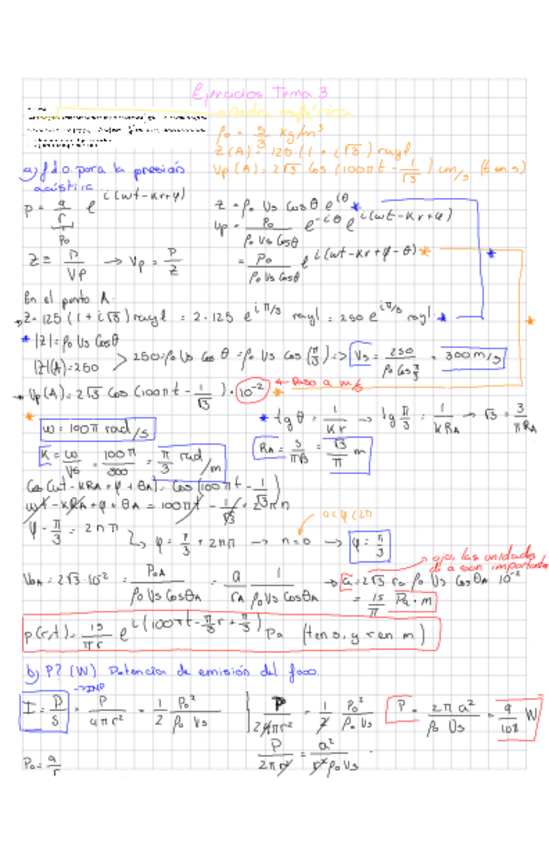 Ejercicios Tema 3
Onda esférica
ρ₀ = 5/3 kg/m³
Z(A) = 125 (1 + i√3) rayl
Vp(A) = 2√3 Cos (100πt - 1/√3) cm/s (t en s)
a) f.d.o. para la presión
acústica
p = a/r e^i(wt-Kr+φ)
p₀
Z = ρ₀ Vs Cosθ e^iθ
Vp = P₀/(ρ₀ Vs Cosθ) e^-iθ e^i(wt-Kr+φ)
= P₀/(ρ₀ Vs Cosθ) e^i(wt-Kr+φ-θ)
Z = P/Vp → Vp = P/Z
En el punto A:
Z = 125 (1 + i√3) rayl = 2·125 e^iπ/3 rayl = 250 e^iπ/3 rayl
|Z| = ρ₀ Vs Cosθ
|Z|(A) = 250
250 = ρ₀ Vs Cos θ = ρ₀ Vs Cos(π/3) => Vs = 250/(ρ₀ Cos π/3) = 300 m/s
Vp(A) = 2√3 Cos (100πt - 1/√3) · 10⁻² ← Paso a m/s
w = 100π rad/s
tgθ = 1/Kr → tg π/3 = 1/KRA → √3 = 3/πRA
K = w/Vs = 100π/300 = π/3 rad/m
RA = 3/π√3 = √3/π m
Cos (wt - KRA + φ + θA) = Cos (100πt - 1/√3)
wt - KRA + φ + θA = 100πt - 1/√3 + 2πn
0<φ<2π
φ - π/3 = 2nπ
φ = π/3 + 2nπ → n=0 → φ = π/3
ojo, las unidades
de a son importantes
V₀A = 2√3·10⁻² = P₀A/(ρ₀ Vs CosθA) = a/rA 1/(ρ₀ Vs CosθA) → a = 2√3 rA ρ₀ Vs CosθA 10⁻²
= 15/π Pa·m
p(r,t) = 15/πr e^i(100πt - π/3 r + π/3) Pa (t en s, y r en m)
b) P? (W) Potencia de emisión del foco
I = P/S = P/4πr² = 1/2 P₀²/(ρ₀ Vs)
P/2 4πr² = 1/2 P₀²/(ρ₀ Vs)
P = 2πa²/(ρ₀ Vs) = 9/10π W
P/2πr² = a²/(r²ρ₀Vs)
P₀ = a/r